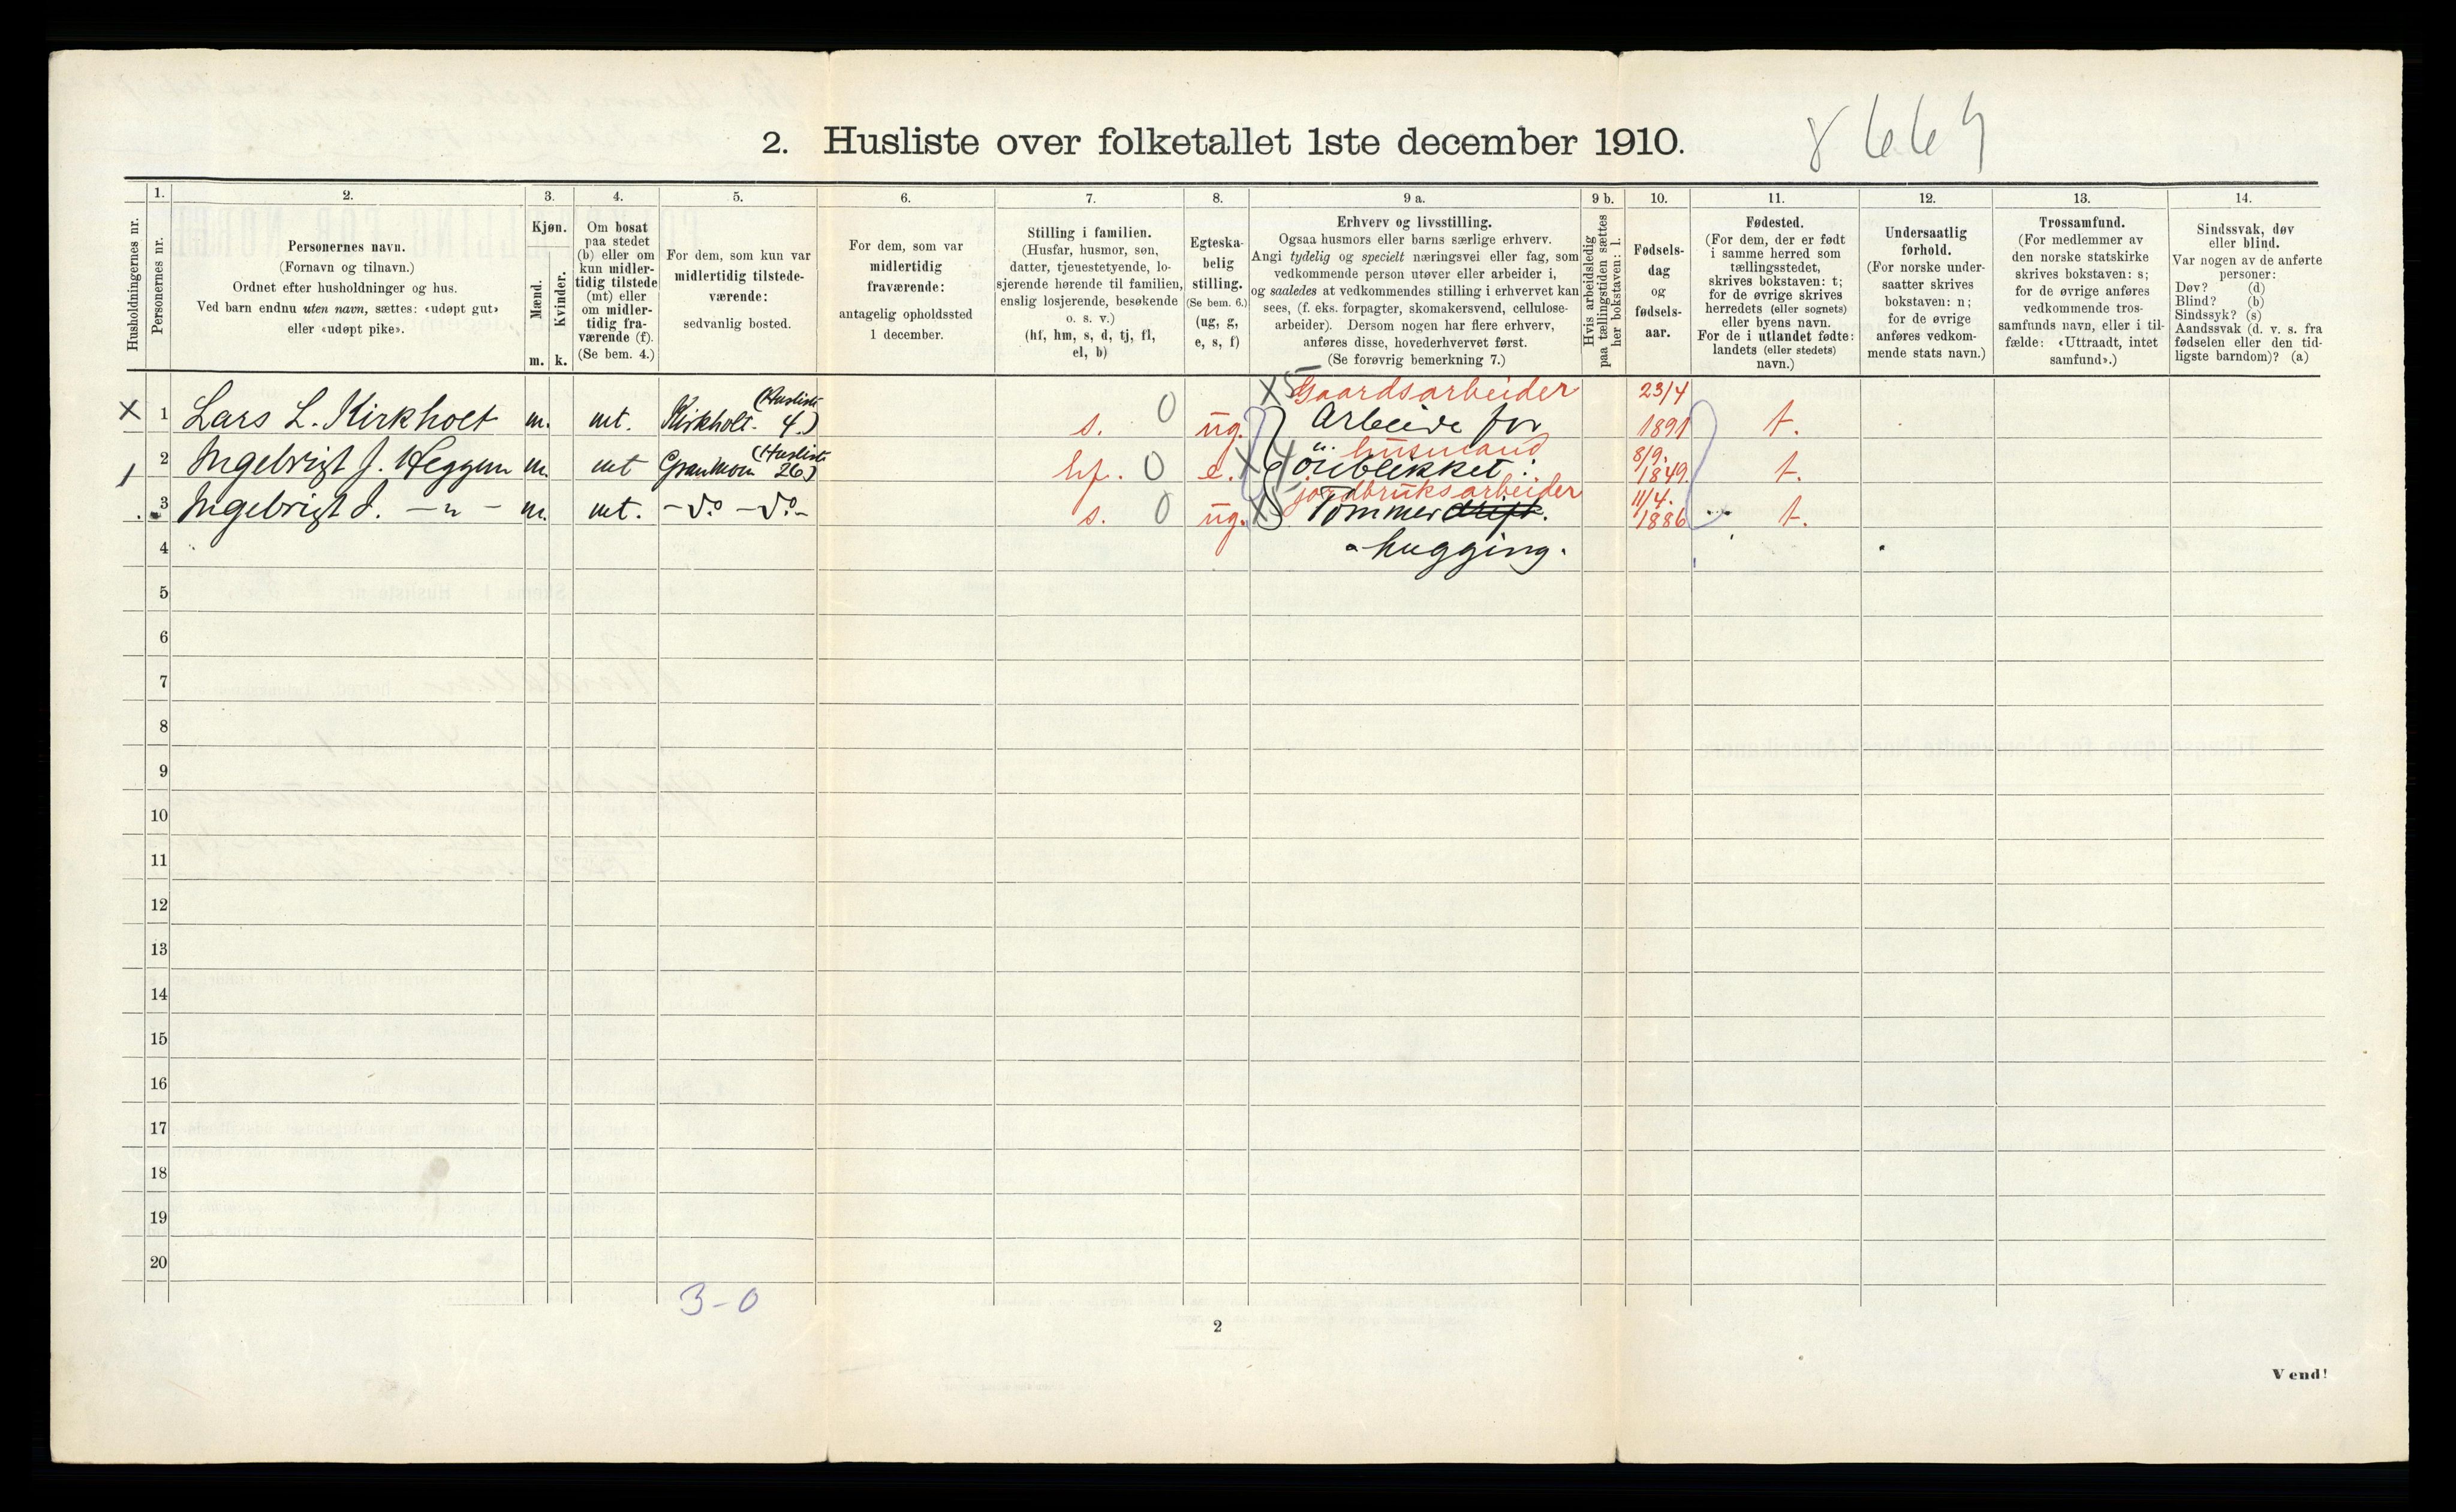 2. Husliste over folketallet 1ste december 1910.
1. 2. 3. 4. 5. 6. 7. 8. 9 a. 9 b. 10. 11. 12. 13. 14.
Husholdningernes nr.
Personernes nr.
Personernes navn.
(Fornavn og tilnavn.)
Ordnet efter husholdninger og hus.
Ved barn endnu uten navn, sættes: «udøpt gut»
eller «udøpt pike».
Kjøn.
Mænd.
m.
Kvinder.
k.
Om bosat
paa stedet
(b) eller om
kun midler-
tidig tilstede
(mt) eller
om midler-
tidig fra-
værende (f).
(Se bem. 4.)
For dem, som kun var
midlertidig tilstede-
værende:
sedvanlig bosted.
For dem, som var
midlertidig
fraværende:
antagelig opholdssted
1 december.
Stilling i familien.
(Husfar, husmor, søn,
datter, tjenestetyende, lo-
sjerende hørende til familien,
enslig losjerende, besøkende
o. s. v.)
(hf, hm, s, d, tj, fl,
el, b)
Egteska-
belig
stilling.
(Se bem. 6.)
(ug, g,
e, s, f)
Erhverv og livsstilling.
Ogsaa husmors eller barns særlige erhverv.
Angi tydelig og specielt næringsvei eller fag, som
vedkommende person utøver eller arbeider i,
og saaledes at vedkommendes stilling i erhvervet kan
sees, (f. eks. forpagter, skomakersvend, cellulose-
arbeider). Dersom nogen har flere erhverv,
anføres disse, hovederhvervet først.
(Se forøvrig bemerkning 7.)
Hvis arbeidsledig
paa tællingstiden sættes
her bokstaven: l.
Fødsels-
dag
og
fødsels-
aar.
Fødested.
(For dem, der er født
i samme herred som
tællingsstedet,
skrives bokstaven: t;
for de øvrige skrives
herredets (eller sognets)
eller byens navn.
For de i utlandet fødte:
landets (eller stedets)
navn.)
Undersaatlig
forhold.
(For norske under-
saatter skrives
bokstaven: n;
for de øvrige
anføres vedkom-
mende stats navn.)
Trossamfund.
(For medlemmer av
den norske statskirke
skrives bokstaven: s;
for de øvrige anføres
vedkommende tros-
samfunds navn, eller i til-
fælde: «Uttraadt, intet
samfund».)
Sindssvak, døv
eller blind.
Var nogen av de anførte
personer:
Døv? (d)
Blind? (b)
Sindssyk? (s)
Aandssvak (d. v. s. fra
fødselen eller den tid-
ligste barndom)? (a)
X 1 Lars L. Kirkholt m. mt. Kirkholt. (Husliste 4.) s. 0 ug. X5 Gaardsarbeider Arbeide for 23/4 1891 t.
2 Ingebrigt J. Heggen m. mt (Husliste 26) hf. 0 e. X4 husmand öieblikket: 8/9. 1849. t.
3 Ingebrigt I. -"- m. mt. -do -do- s. 0 ug. X5 jordbruksarbeider Tømmerdrift. 11/4. 1886 t.
4 hugging.
5
6
7
8
9
10
11
12
13
14
15
16
17
18
19
20
3-0
2
Vend!